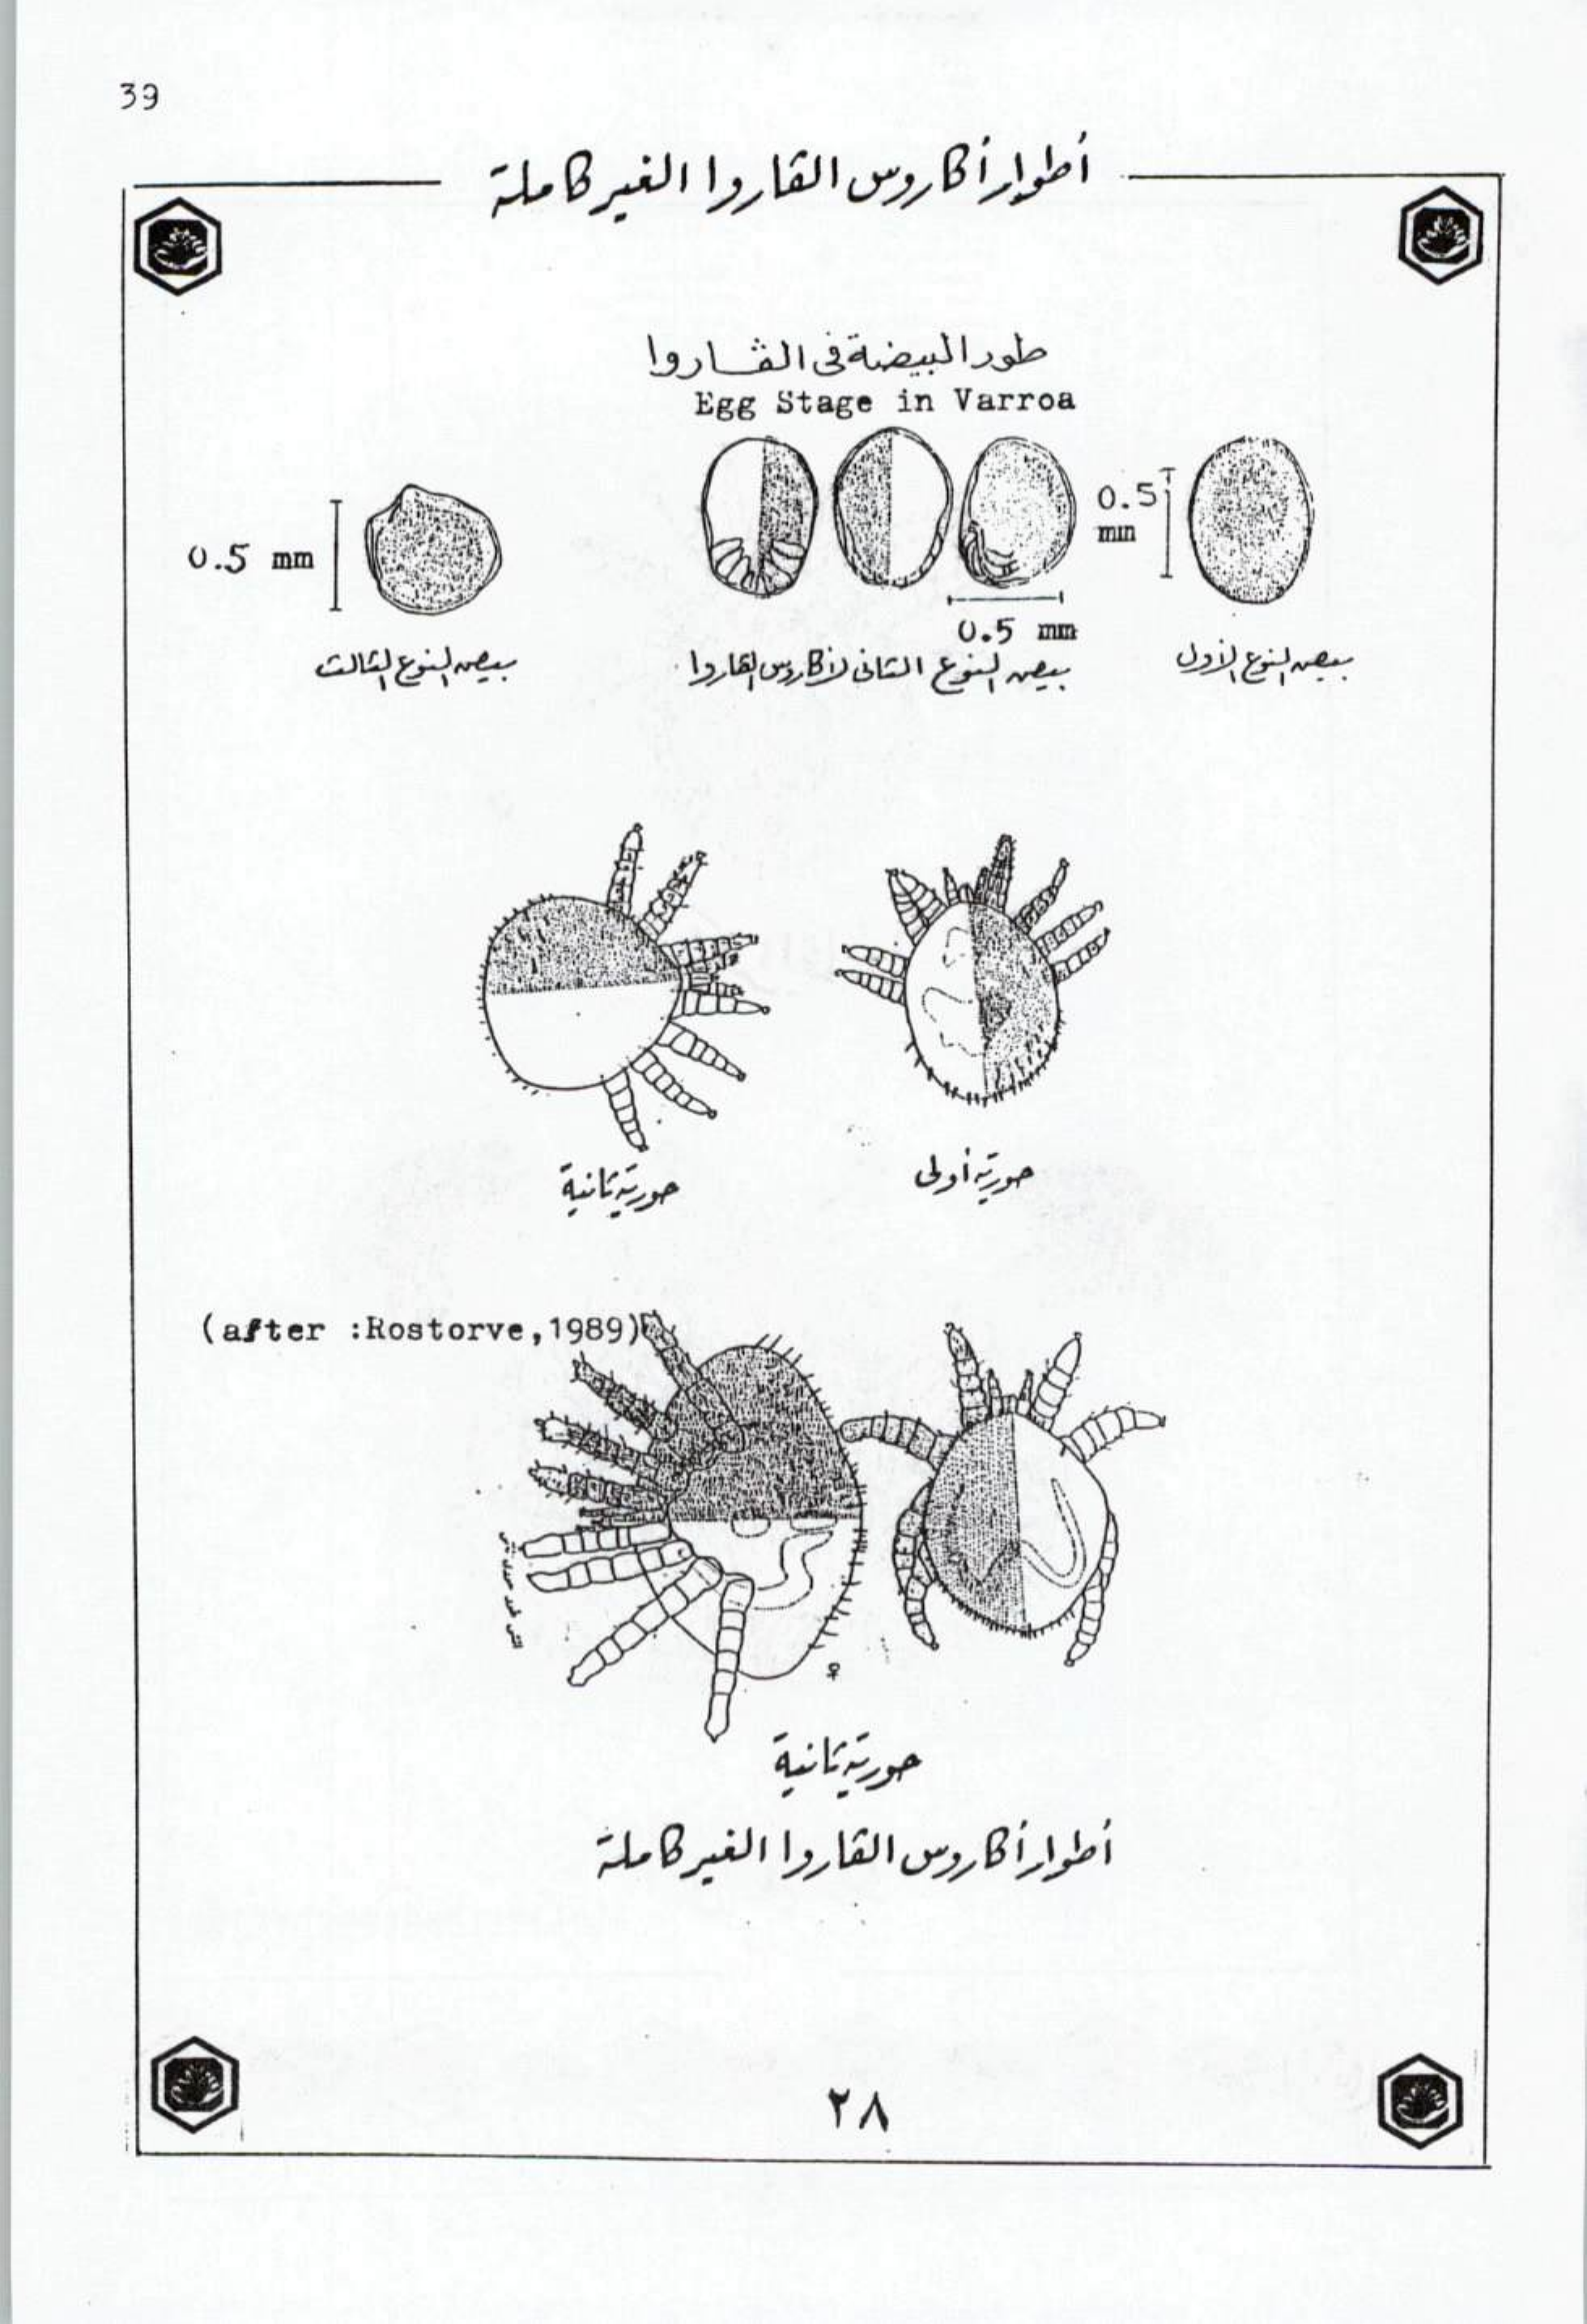 39
أطوار أكاروس القاروا الغير كاملة
طور البيضة فى الڤاروا
Egg Stage in Varroa
0.5 mm
0.5 mm
0.5 mm
بيض النوع الأول
بيض النوع الثانى لأكاروس القاروا
بيض النوع الثالث
حورية أولى
حورية ثانية
(after :Rostorve,1989)
♀
حورية ثانية
أطوار أكاروس القاروا الغير كاملة
٢٨